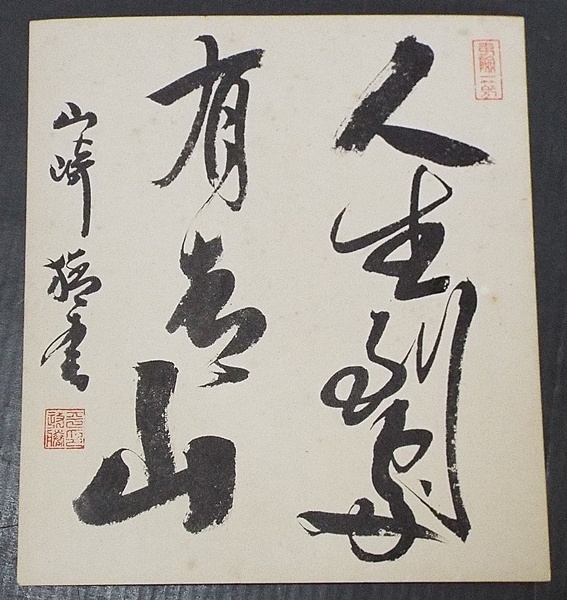 人生到處
有青山
山崎